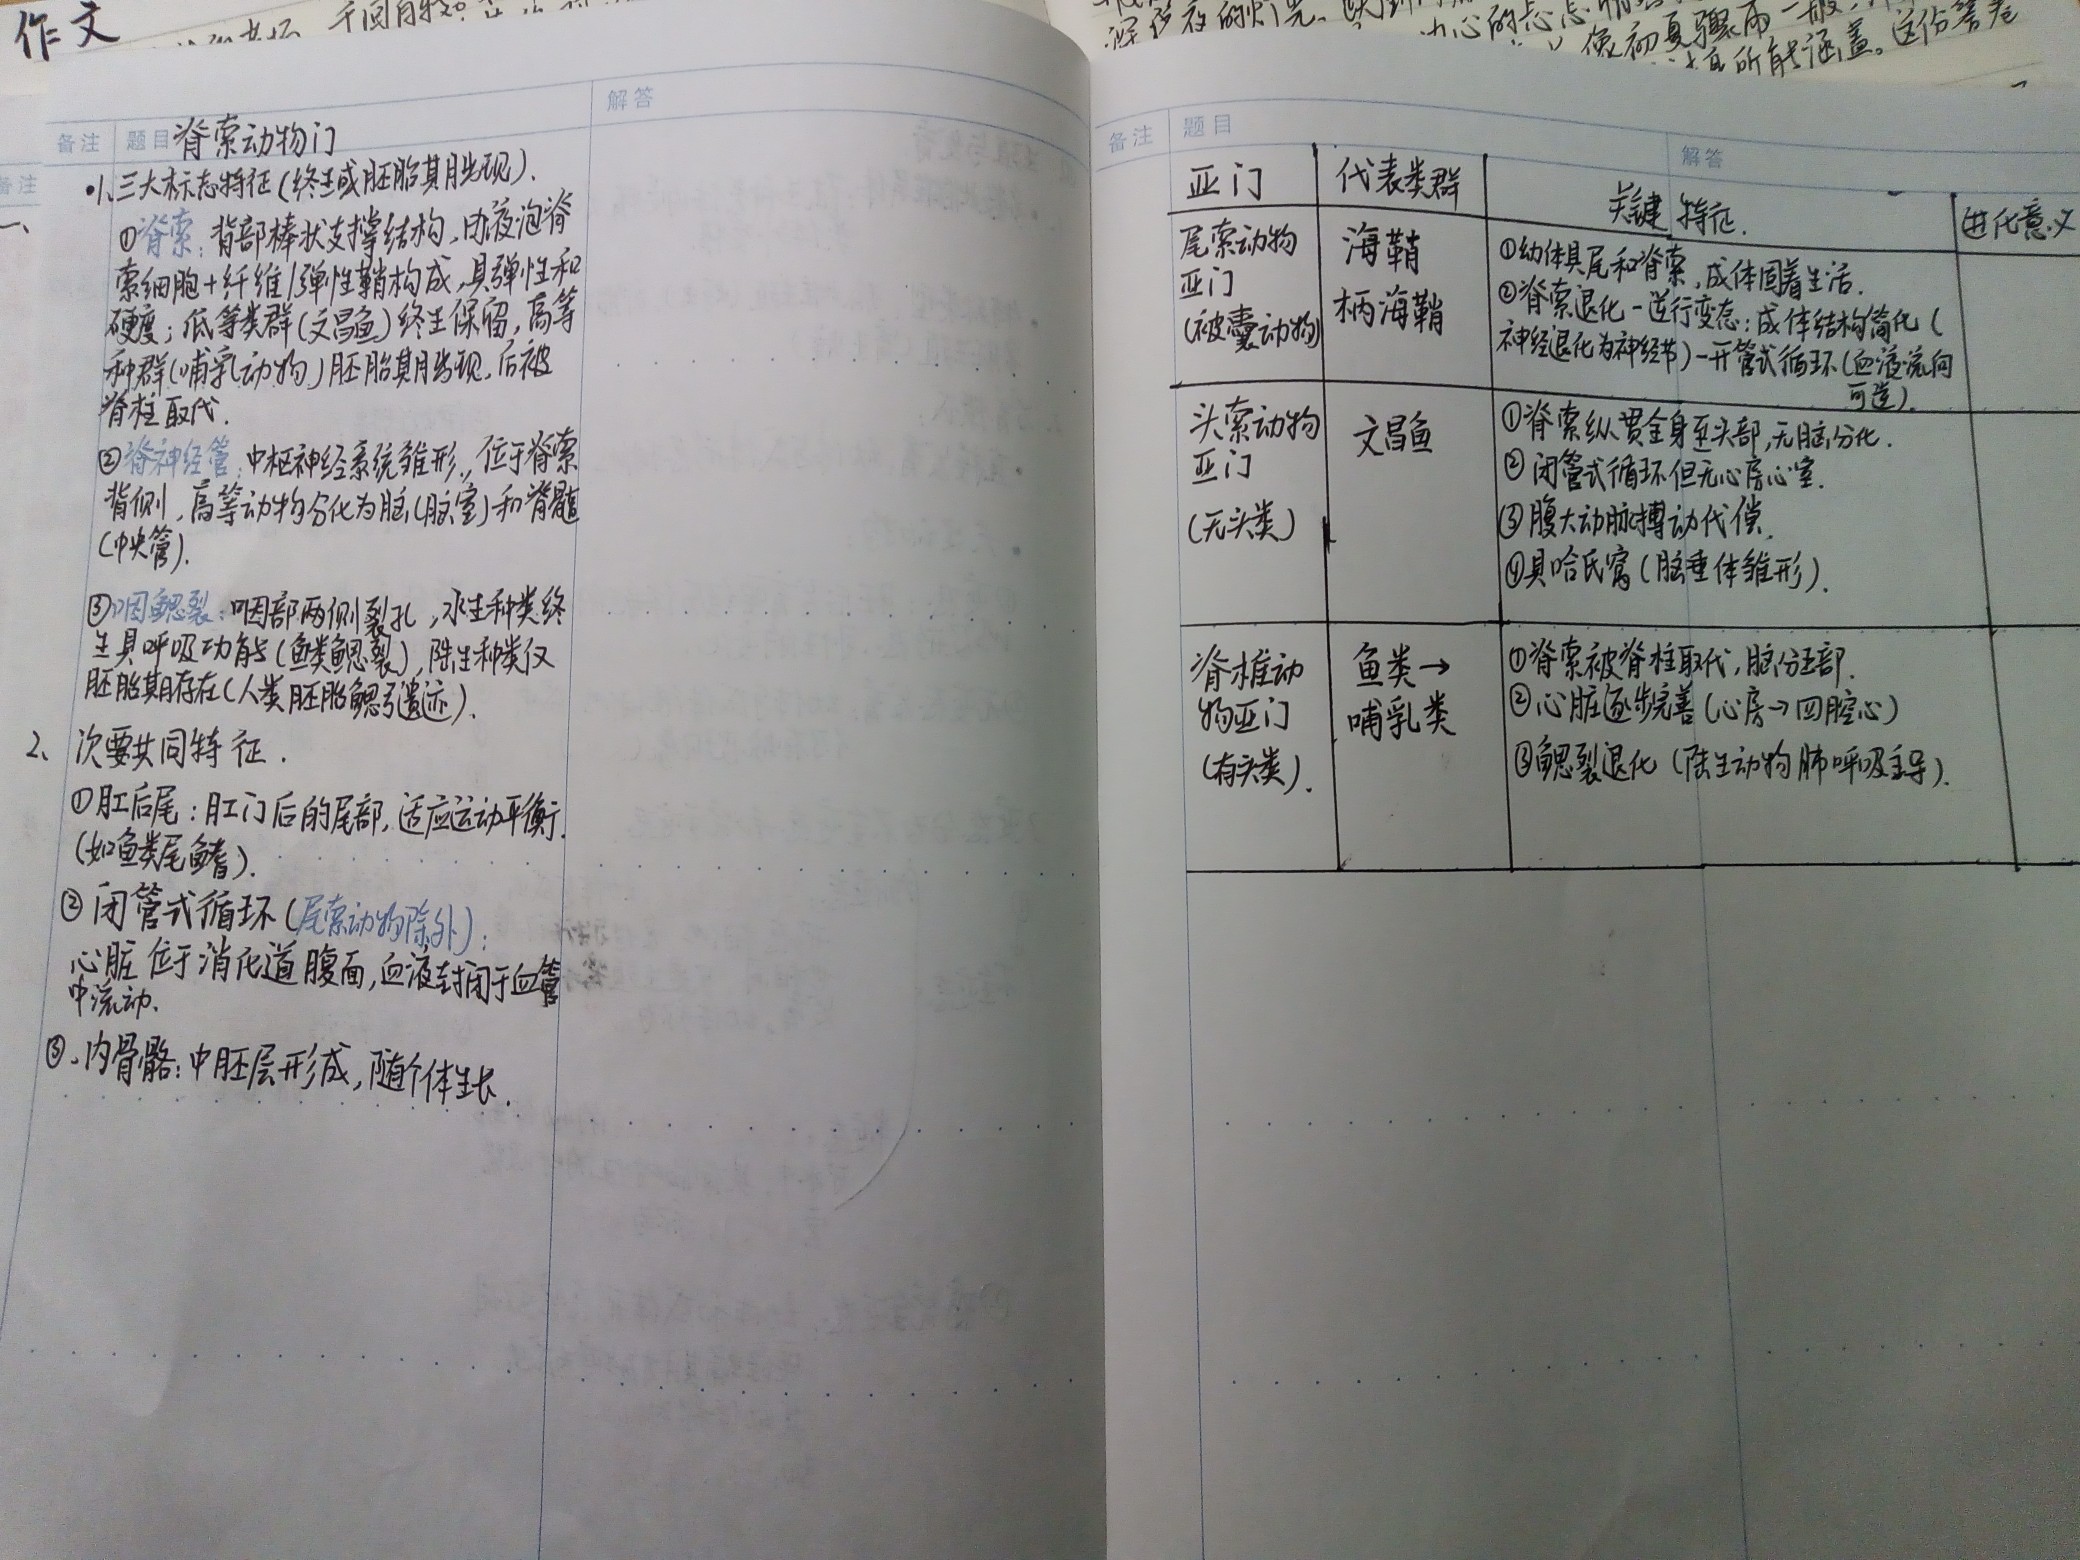 作文
备注 题目 脊索动物门
解答
1、三大标志特征(终生或胚胎期出现).
①脊索:背部棒状支撑结构,由液泡脊
索细胞+纤维/弹性鞘构成,具弹性和
硬度;低等类群(文昌鱼)终生保留,高等
种群(哺乳动物)胚胎期出现,后被
脊柱取代.
②脊神经管:中枢神经系统雏形,位于脊索
背侧,高等动物分化为脑(脑室)和脊髓
(中央管).
③咽鳃裂:咽部两侧裂孔,水生种类终
生具呼吸功能(鱼类鳃裂),陆生种类仅
胚胎期存在(人类胚胎鳃弓遗迹).
2、次要共同特征.
①肛后尾:肛门后的尾部,适应运动平衡.
(如鱼类尾鳍).
②闭管式循环(尾索动物除外):
心脏位于消化道腹面,血液封闭于血管
中流动.
③、内骨骼:中胚层形成,随个体生长.
备注 题目
解答
亚门 代表类群 关键特征. 进化意义
尾索动物
亚门
(被囊动物)
海鞘
柄海鞘
①幼体具尾和脊索,成体固着生活.
②脊索退化-逆行变态:成体结构简化(
神经退化为神经节)-开管式循环(血液流向
可逆).
头索动物
亚门
(无头类)
文昌鱼
①脊索纵贯全身至头部,无脑分化.
②闭管式循环但无心房心室.
③腹大动脉搏动代偿.
④具哈氏窝(脑垂体雏形).
脊椎动
物亚门
(有头类).
鱼类→
哺乳类
①脊索被脊柱取代,脑分五部.
②心脏逐步完善(心房→四腔心)
③鳃裂退化(陆生动物肺呼吸主导).